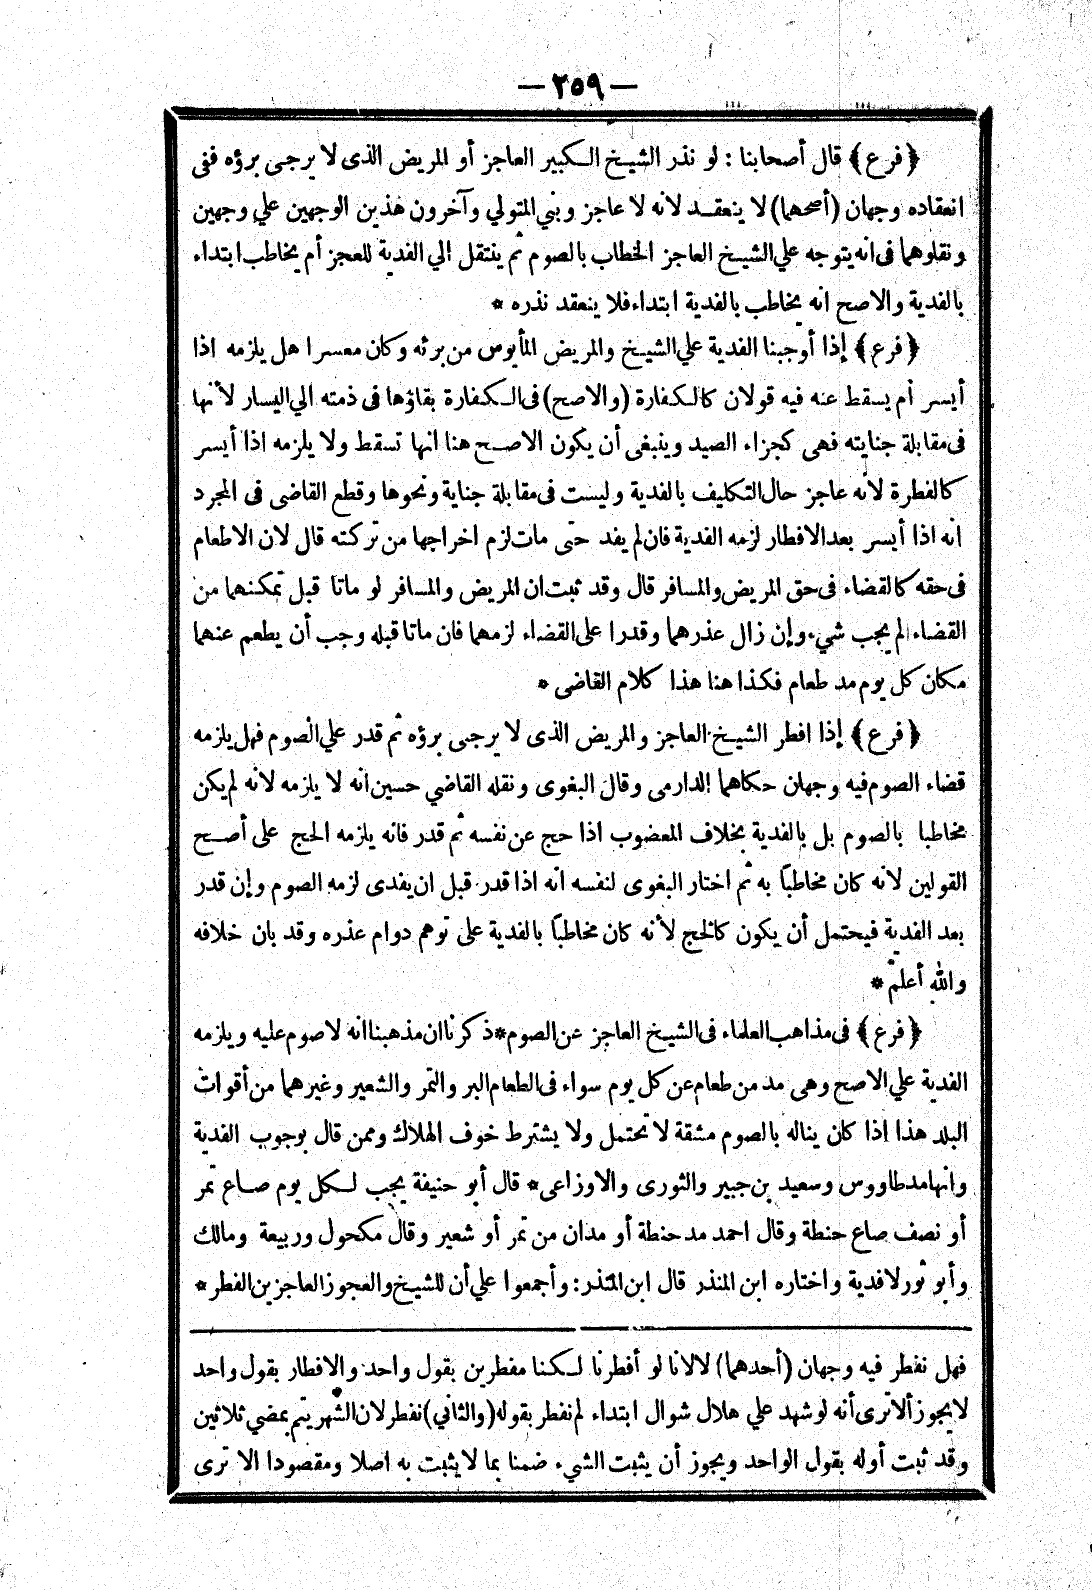 — ٢٥٩ —
﴿ فرع ﴾ قال أصحابنا : لو نذر الشيخ الكبير العاجز أو المريض الذى لا يرجى برؤه ففى
انعقاده وجهان (أصحهما) لا ينعقد لانه لا عاجز وبني المتولي وآخرون هذين الوجهين علي وجهين
ونقلوهما فى انه يتوجه علي الشيخ العاجز الخطاب بالصوم ثم ينتقل الي الفدية للعجز أم يخاطب ابتداء
بالفدية والاصح انه يخاطب بالفدية ابتداء فلا ينعقد نذره *
﴿ فرع ﴾ إذا أوجبنا الفدية علي الشيخ والمريض المأيوس من برئه وكان معسرا هل يلزمه اذا
أيسر أم يسقط عنه فيه قولان كالكفارة (والاصح) فى الكفارة بقاؤها فى ذمته الي اليسار لأنها
فى مقابلة جنايته فهى كجزاء الصيد وينبغى أن يكون الاصح هنا انها تسقط ولا يلزمه اذا أيسر
كالفطرة لأنه عاجز حال التكليف بالفدية وليست فى مقابلة جناية ونحوها وقطع القاضى فى المجرد
انه اذا أيسر بعد الافطار لزمه الفدية فان لم يفد حتى مات لزم اخراجها من تركته قال لان الاطعام
فى حقه كالقضاء فى حق المريض والمسافر قال وقد ثبت ان المريض والمسافر لو ماتا قبل تمكنهما من
القضاء لم يجب شيء وإن زال عذرهما وقدرا على القضاء لزمهما فان ماتا قبله وجب أن يطعم عنهما
مكان كل يوم مد طعام فكذا هنا هذا كلام القاضى *
﴿ فرع ﴾ إذا افطر الشيخ العاجز والمريض الذى لا يرجى برؤه ثم قدر علي الصوم فهل يلزمه
قضاء الصوم فيه وجهان حكاهما الدارمى وقال البغوى ونقله القاضي حسين انه لا يلزمه لانه لم يكن
مخاطبا بالصوم بل بالفدية بخلاف المعضوب اذا حج عن نفسه ثم قدر فانه يلزمه الحج على أصح
القولين لانه كان مخاطبًا به ثم اختار البغوى لنفسه انه اذا قدر قبل ان يفدى لزمه الصوم وإن قدر
بعد الفدية فيحتمل أن يكون كالحج لأنه كان مخاطبًا بالفدية على توهم دوام عذره وقد بان خلافه
والله أعلم *
﴿ فرع ﴾ فى مذاهب العلماء فى الشيخ العاجز عن الصوم * ذكرنا ان مذهبنا انه لا صوم عليه ويلزمه
الفدية علي الاصح وهى مد من طعام عن كل يوم سواء فى الطعام البر والتمر والشعير وغيرهما من أقوات
البلد هذا اذا كان يناله بالصوم مشقة لا تحتمل ولا يشترط خوف الهلاك وممن قال بوجوب الفدية
وانها مد طاووس وسعيد بن جبير والثورى والاوزاعى * قال أبو حنيفة يجب لكل يوم صاع تمر
أو نصف صاع حنطة وقال احمد مد حنطة أو مدان من تمر أو شعير وقال مكحول وربيعة ومالك
وأبو ثور لا فدية واختاره ابن المنذر قال ابن المنذر : وأجمعوا علي أن للشيخ والعجوز العاجزين الفطر *
فهل نفطر فيه وجهان (أحدهما) لا لانا لو أفطرنا لكنا مفطرين بقول واحد والافطار بقول واحد
لا يجوز ألا ترى أنه لو شهد علي هلال شوال ابتداء لم نفطر بقوله (والثاني) نفطر لان الشهر يتم بمضي ثلاثين
وقد ثبت أوله بقول الواحد ويجوز أن يثبت الشيء ضمنا بما لا يثبت به اصلا ومقصودا الا ترى